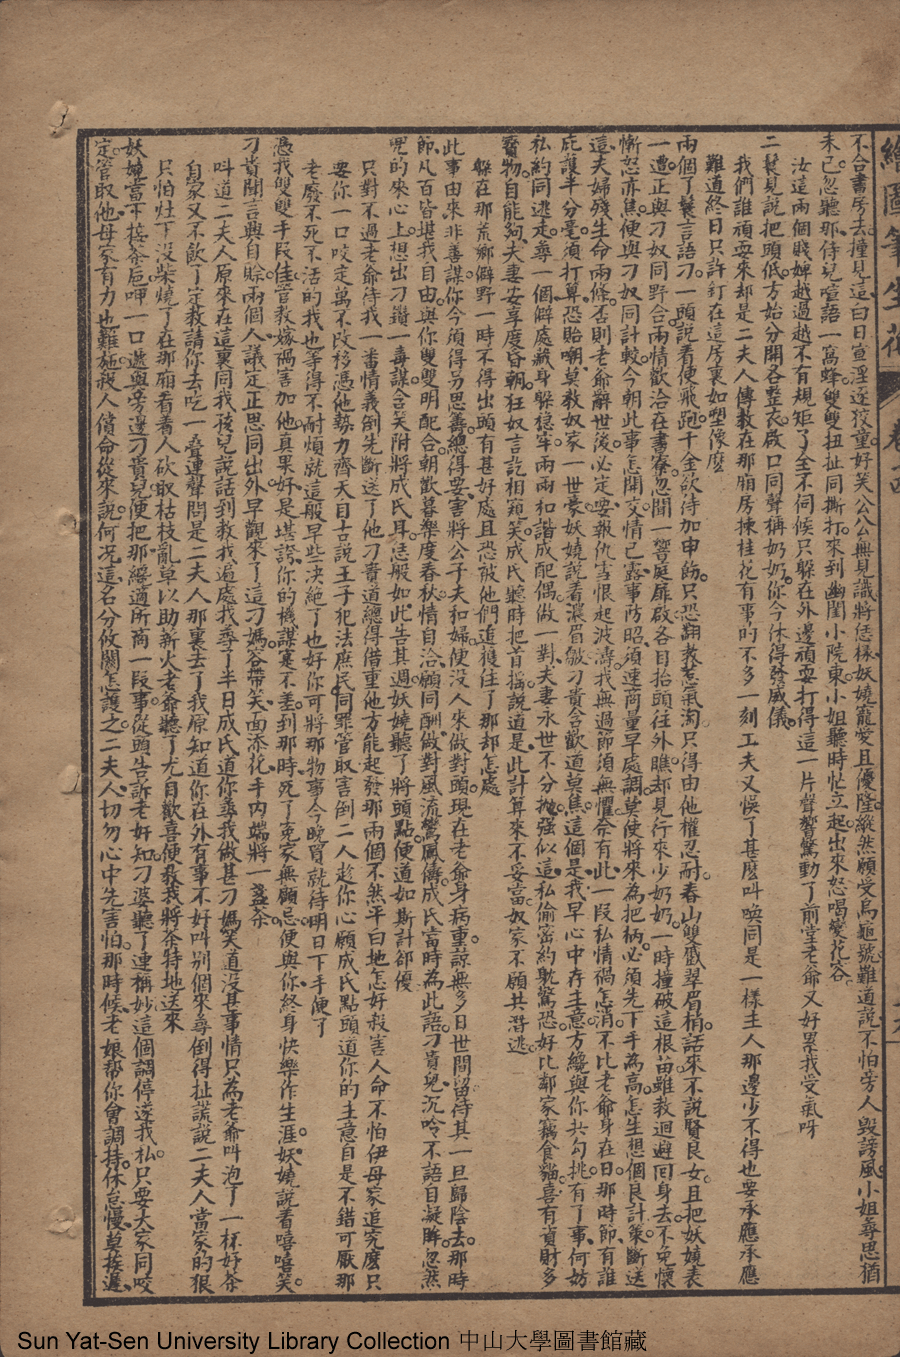 繪圖筆生花 卷十四
不合書房去撞見這白日宣淫逐狡童好笑公公無見識將恁樣妖嬈寵愛且優隆縱然願受烏龜號難道說不怕旁人毀謗風小姐尋思猶
未已忽聽那侍兒喧語一窩蜂雙雙扭扯同撕打來到幽閨小院東小姐聽時忙立起出來怒喝鬢花容
汝這兩個賤婢越過越不有規矩了全不伺候只躲在外邊頑耍打得這一片聲響驚動了前堂老爺又好累我受氣呀
二鬟見說把頭低方始分開各整衣啟口同聲稱奶奶你今休得發威儀
我們誰頑耍來却是二夫人傳教在那廂房揀桂花有事的不多一刻工夫又悞了甚麼叫喚同是一樣主人那邊少不得也要承應承應
難道終日只許釘在這房裏如塑像麼
兩個丫鬟言語刁一頭說着便飛跑千金欲待加申飭只恐翻教惹氣淘只得由他權忍耐春山雙蹙翠眉梢話來不說賢良女且把妖嬈表
一遭正與刁奴同野合兩情歡洽在書寮忽聞一響庭扉啟各目抬頭往外瞧却見行來少奶奶一時撞破這根苗雖教迴避回身去不免懷
慚怒亦焦便與刁奴同計較今朝此事怎開交情已露事防昭須速商量早處調莫使將來為把柄必須先下手為高怎生想個良計策斷送
這夫婦殘生命兩條否則老爺辭世後必定要報仇雪恨起波濤我無過節須無懼奈有此一段私情禍怎消不比老爺身在日那時節有誰
庇護半分毫須打算恐貽嘲莫教奴家一世豪妖嬈說着濃眉皺刁貴含歡道莫焦這個是我早心中存主意方纔與你共勾挑有了事何妨
私約同逃走尋一個僻處藏身躲穩牢兩兩和諧成配偶做一對夫妻永世不分拋強似這私偷密約躭驚恐好比鄰家竊食貓喜有資財多
寶物自能夠夫妻安享度昏朝狂奴言訖相籠笑成氏聽時把首搖說道是此計算來不妥當奴家不願共潛逃
躲在那荒鄉僻野一時不得出頭有甚好處且恐被他們追獲住了那却怎處
此事由來非善謀你今須得另思籌總得要害將公子夫和婦便沒人來做對頭現在老爺身病重諒無多日世間留侍其一旦歸陰去那時
節凡百皆堪我自由與你雙雙明配合朝歡暮樂度春秋情自洽願同酬做對風流鸞鳳儔成氏言時為此語刁貴兒沉吟不語自凝眸忽然
兜的來心上想出刁鑽一毒謀含笑附將成氏耳恁般如此告其週妖嬈聽了將頭點便道如斯計却優
只對不過老爺待我一番情義倒先斷送了他刁貴道總得借重他方能起發那兩個不然平白地怎好殺害人命不怕伊母家追究麼只
要你一口咬定萬不改移憑他勢力齊天自古說王子犯法庶民同罪管取害倒二人趁你心願成氏點頭道你的主意自是不錯可厭那
老廢不死不活的我也等得不耐煩就這般早些决絕了也好你可將那物事今晚買就待明日下手便了
憑我雙雙手段佳管教嫁禍害加他真果好是堪誇你的機謀寔不差到那時死了冤家無顧忌便與你終身快樂作生涯妖嬈說着嘻嘻笑
刁貴開言興自賒兩個人議定正思同出外早觀來了這刁媽容帶笑面添花手內端將一盞茶
叫道二夫人原來在這裏同我孩兒說話到教我遍處找尋了半日成氏道你尋我做甚刁媽笑道沒甚事情只為老爺叫泡了一杯好茶
自家又不飲了定教請你去吃一疊連聲問是二夫人那裏去了我原知道你在外有事不好叫別個來尋倒得扯謊說二夫人當家的狠
只怕灶下沒柴燒了在那廂看着人砍取枯枝亂草以助薪火老爺聽了尤自歡喜便教我將茶特地送來
妖嬈當下接茶卮呷一口遞與旁邊刁貴兒便把那纔適所商一段事從頭告訴老奸知刁婆聽了連稱妙這個調停遂我私只要大家同咬
定管取他母家有力也難施殺人償命從來說何况這名分攸關怎護之二夫人切勿心中先害怕那時候老娘帮你會調持休怠慢莫挨遲
Sun Yat-Sen University Library Collection 中山大學圖書館藏